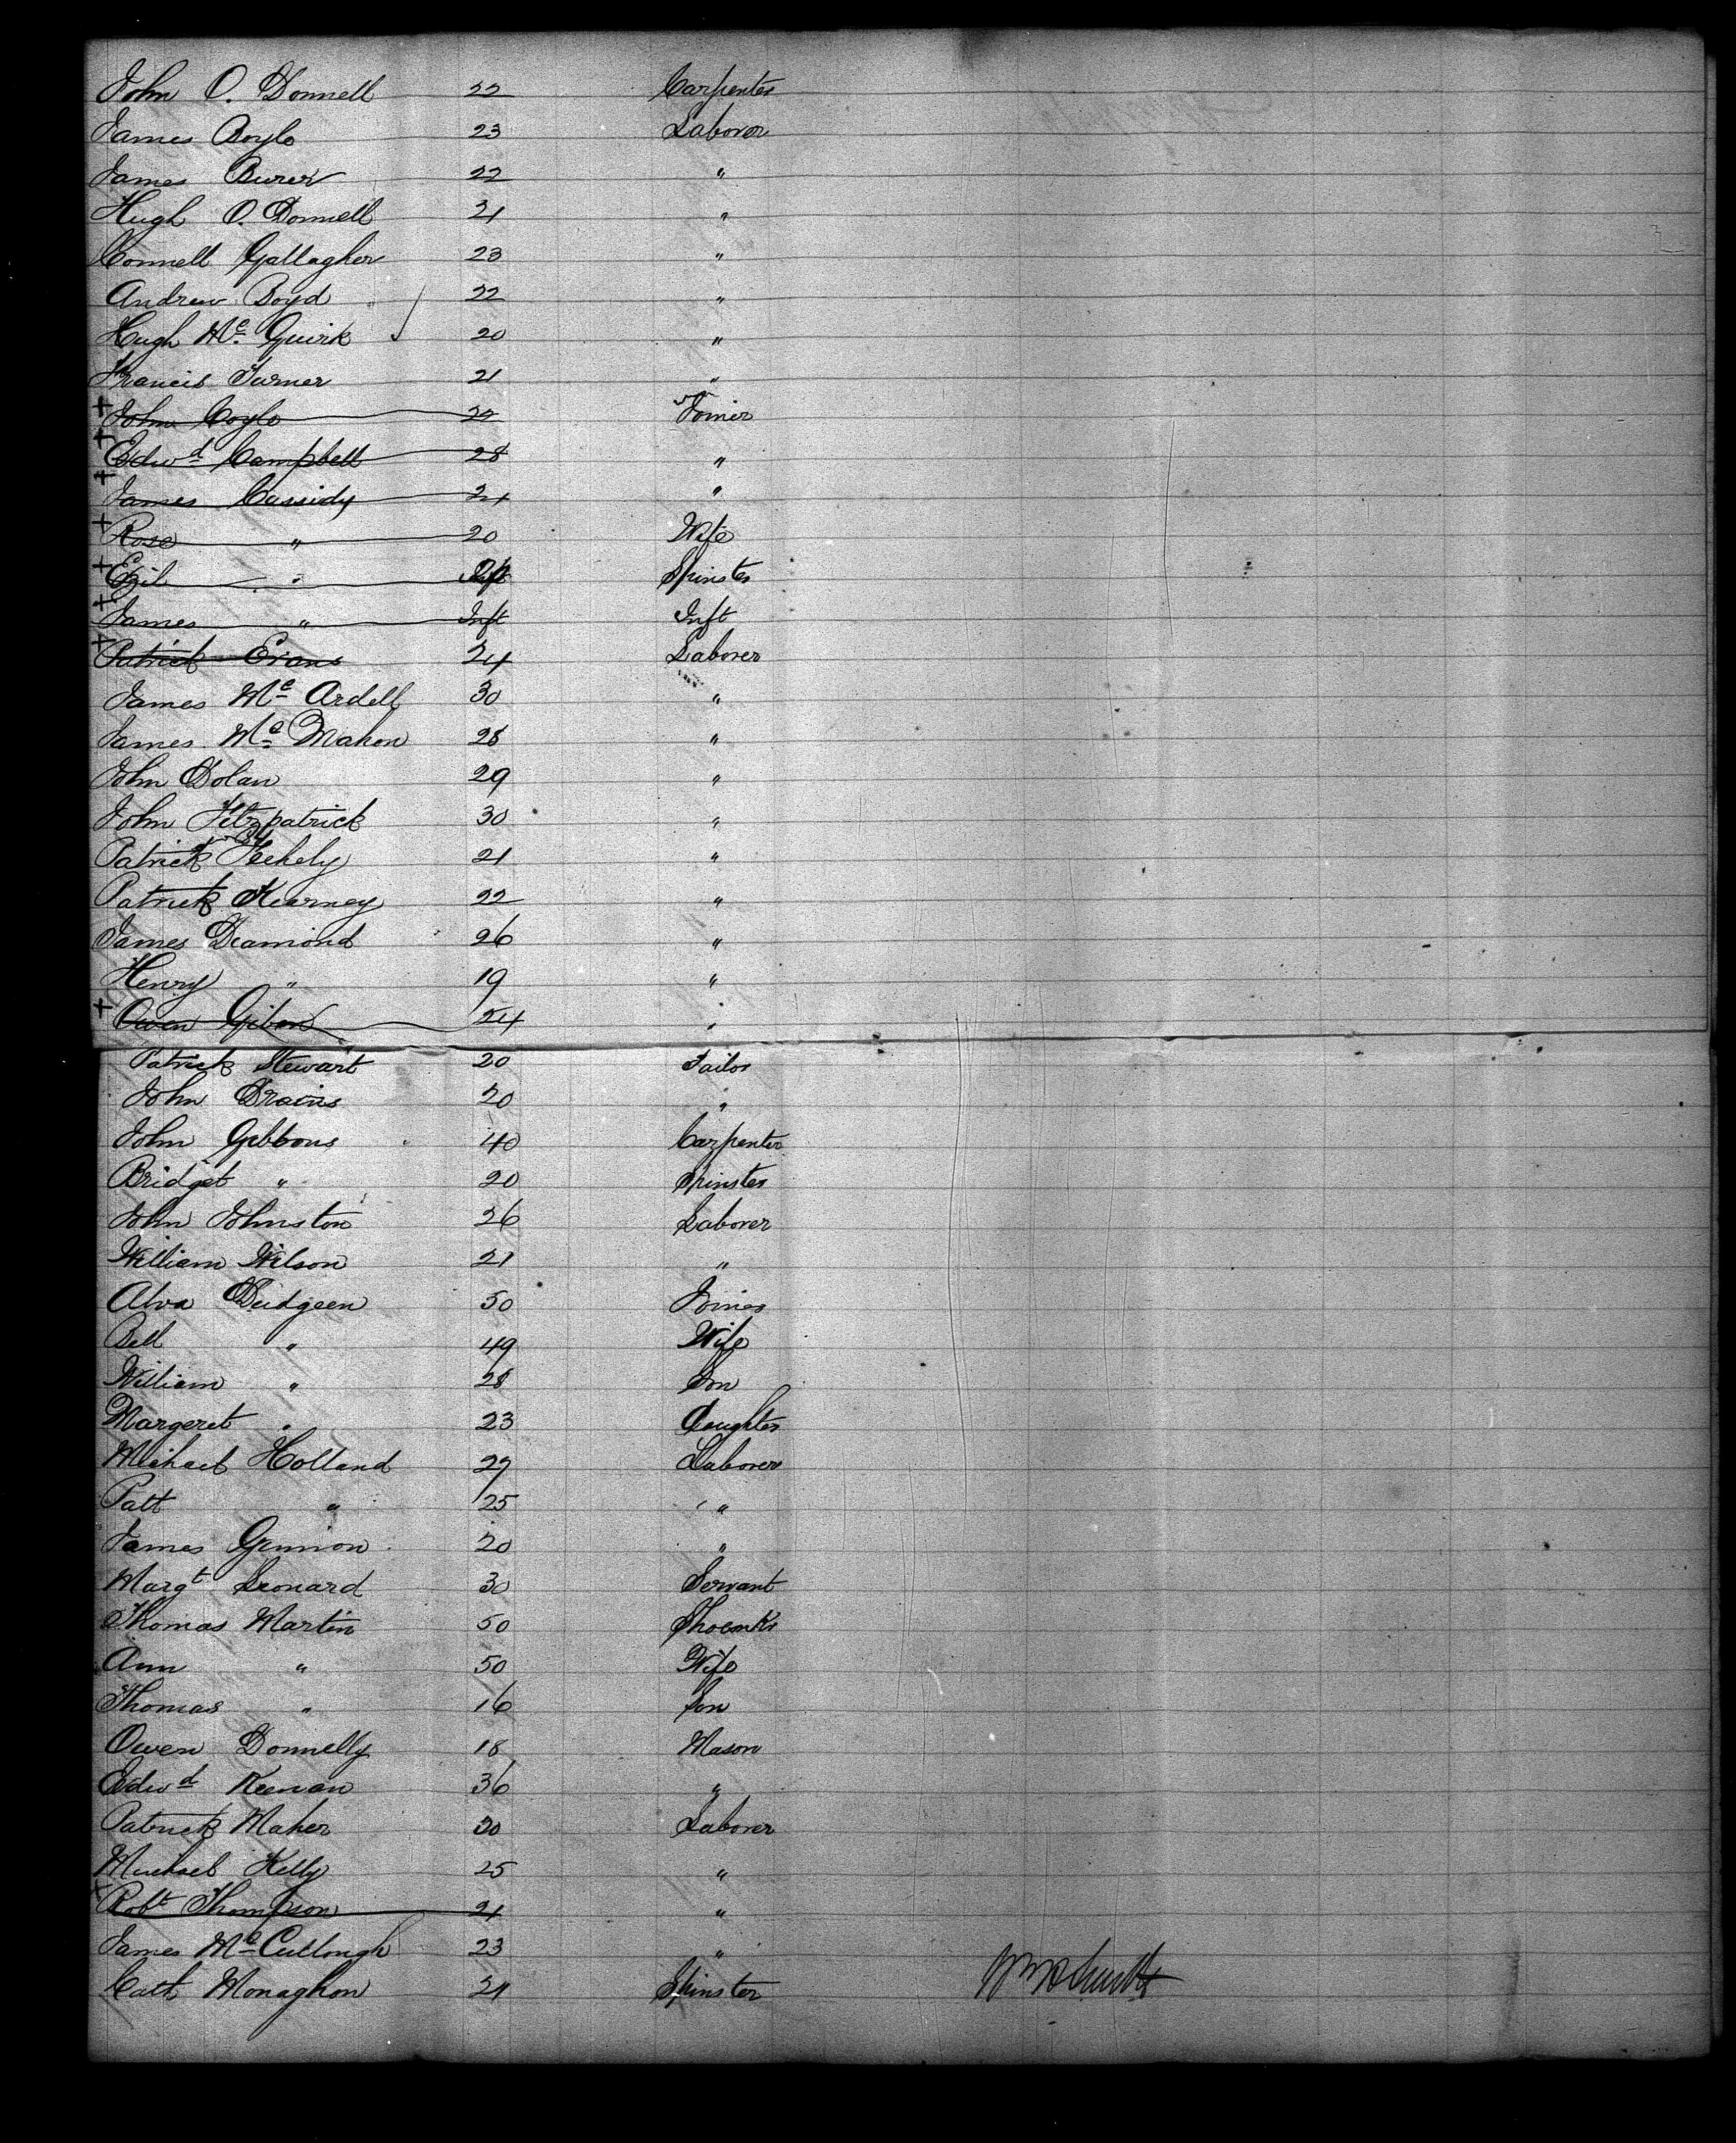 John O. Donnell 22 Carpenter
James Boyle 23 Laborer
James 22 "
Hugh O. Donnell 21 "
Connell Gallagher 23 "
Andrew Boyd 22 "
Hugh Mc Quirk 20 "
Francis Turner 21 "
John Coyle 22 Joiner
Edwd Campbell 28 "
James Cassidy 24 "
Rose " 20 Wife
" Spinster
James " Inft Inft
Patrick Evans 24 Laborer
James Mc Ardell 30 "
James Mc Mahon 28 "
John Dolan 29 "
John Fitzpatrick 30 "
Patrick 21 "
Patrick Kearney 22 "
James Diamond 26 "
Henry " 19 "
Owen 24 "
Patrick Stewart 20 Tailor
John 20 "
John Gibbons 40 Carpenter
Bridget " 20 Spinster
John Johnston 26 Laborer
William Wilson 21 "
Alva Dudgeen 50 Joiner
Bell " 49 Wife
William " 28 Son
Margeret " 23 Daughter
Michael Holland 27 Laborer
Patt " 25 "
James 20 "
Margt Leonard 30 Servant
Thomas Martin 50 Shoemkr
Ann " 50 Wife
Thomas " 16 Son
Owen Donnelly 18 Mason
Edwd Keenan 36 "
Patrick Maher 30 Laborer
Michael Kelly 25 "
Robt Thompson 21 "
James Mc Cullough 23 "
Cath Monaghon 21 Spinster